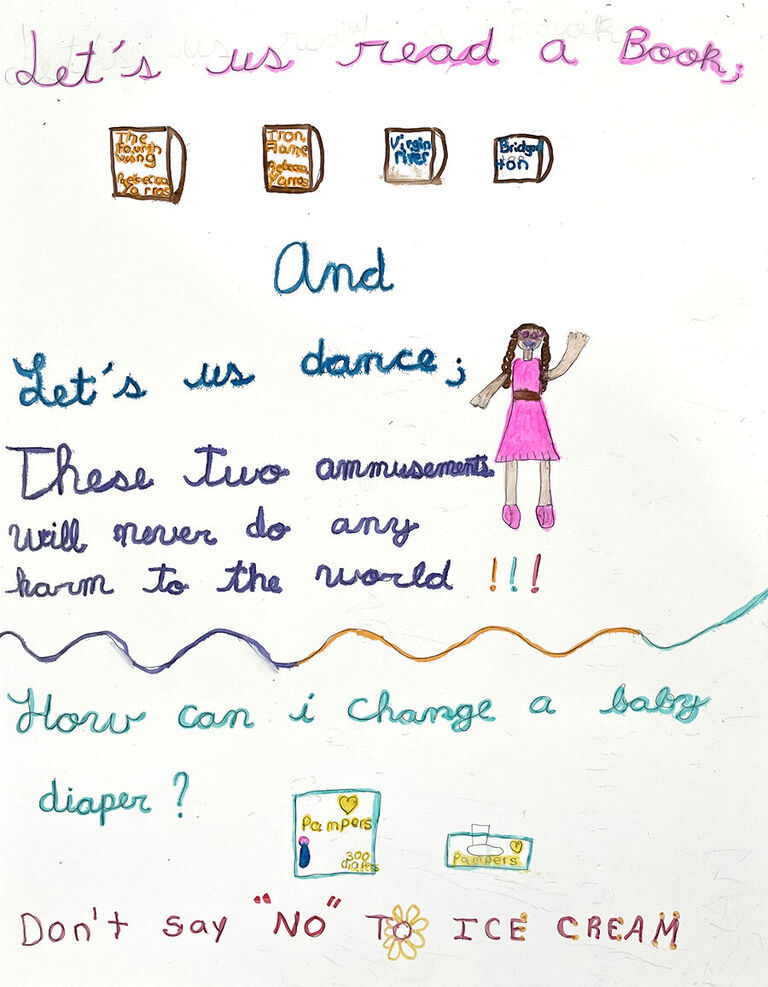 Let's us read a Book;
The
fourth
wing
Rebecca
Yarros
Iron
Flame
Rebecca
Yarros
Virgin
river
Bridger
ton
And
Let's us dance;
These two ammusements
will never do any
harm to the world !!!
How can i change a baby
diaper?
Pampers
300
diapers
Pampers
Don't say "NO" TO ICE CREAM